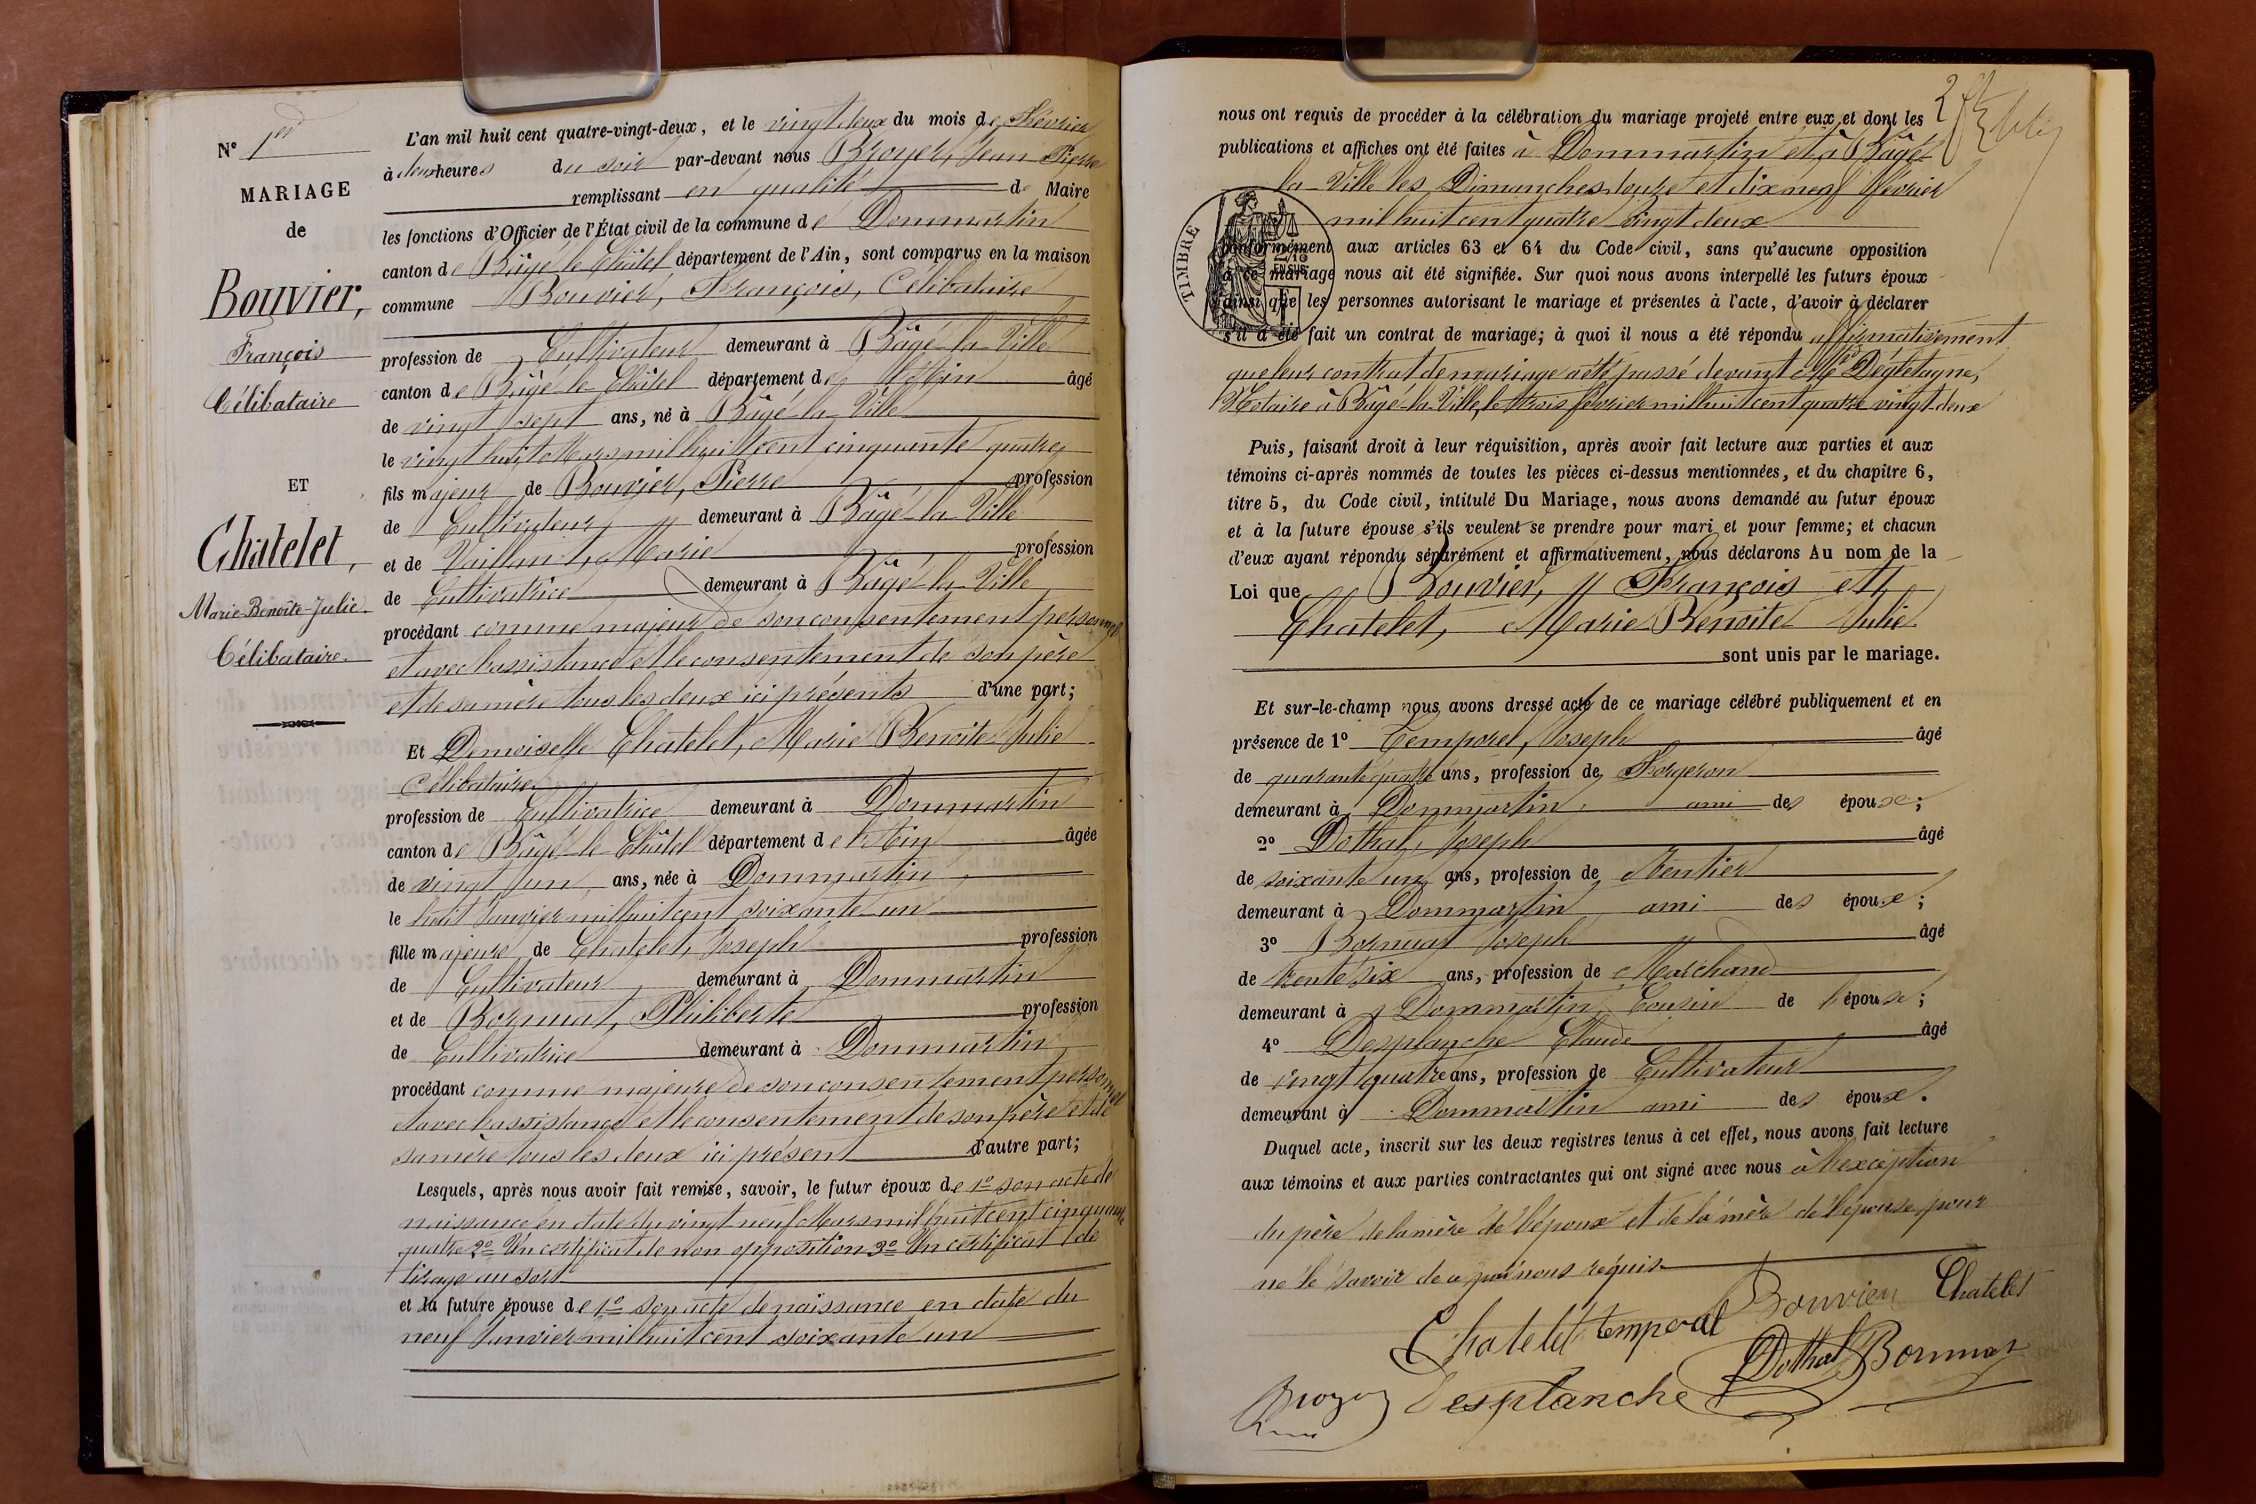 N° 1er
MARIAGE
de
Bouvier,
François
Célibataire
ET
Chatelet,
Marie-Benoîte-Julie.
Célibataire.
L'an mil huit cent quatre-vingt-deux, et le vingt deux du mois de Février
à deux heures du soir par-devant nous Broyer, Jean Pierre
remplissant en qualité de Maire
les fonctions d'Officier de l'État civil de la commune de Dommartin
canton de Bâgé-le-Châtel département de l'Ain, sont comparus en la maison
commune Bouvier, François, Célibataire
profession de Cultivateur demeurant à Bâgé-la-Ville
canton de Bâgé-le-Châtel département de l'Ain âgé
de vingt sept ans, né à Bâgé-la-Ville
le vingt huit Mars mil huit cent cinquante quatre
fils majeur de Bouvier, Pierre profession
de Cultivateur demeurant à Bâgé-la-Ville
et de Vaillant, Marie profession
de Cultivatrice demeurant à Bâgé-la-Ville
procédant comme majeur de son consentement personnel
et avec l'assistance et le consentement de son père
et de sa mère tous les deux ici présents d'une part;
Et Demoiselle Chatelet, Marie Benoite Julie
Célibataire
profession de Cultivatrice demeurant à Dommartin
canton de Bâgé-le-Châtel département de l'Ain âgée
de vingt un ans, née à Dommartin
le huit Janvier mil huit cent soixante un
fille majeure de Chatelet, Joseph profession
de Cultivateur demeurant à Dommartin
et de Bormat, Philiberte profession
de Cultivatrice demeurant à Dommartin
procédant comme majeure de son consentement personnel
et avec l'assistance et le consentement de son père et de
sa mère tous les deux ici présent d'autre part;
Lesquels, après nous avoir fait remise, savoir, le futur époux de 1° son acte de
naissance en date du vingt neuf Mars mil huit cent cinquante
quatre 2° Un certificat de non opposition 3° Un certificat de
tirage au sort
et la future épouse de 1° son acte de naissance en date du
neuf Janvier mil huit cent soixante un
nous ont requis de procéder à la célébration du mariage projeté entre eux et dont les
publications et affiches ont été faites à Dommartin et à Bâgé-
la-Ville les Dimanches douze et dix neuf février
mil huit cent quatre vingt deux
TIMBRE
conformément aux articles 63 et 64 du Code civil, sans qu'aucune opposition
à ce mariage nous ait été signifiée. Sur quoi nous avons interpellé les futurs époux
ainsi que les personnes autorisant le mariage et présentes à l'acte, d'avoir à déclarer
s'il a été fait un contrat de mariage; à quoi il nous a été répondu affirmativement
que leur contrat de mariage a été passé devant Me Dégletagne,
Notaire à Bâgé-la-Ville, le trois février mil huit cent quatre vingt deux
Puis, faisant droit à leur réquisition, après avoir fait lecture aux parties et aux
témoins ci-après nommés de toutes les pièces ci-dessus mentionnées, et du chapitre 6,
titre 5, du Code civil, intitulé Du Mariage, nous avons demandé au futur époux
et à la future épouse s'ils veulent se prendre pour mari et pour femme; et chacun
d'eux ayant répondu séparément et affirmativement, nous déclarons Au nom de la
Loi que Bouvier, François et
Chatelet, Marie Benoite Julie
sont unis par le mariage.
Et sur-le-champ nous avons dressé acte de ce mariage célébré publiquement et en
présence de 1° Temporel, Joseph âgé
de quarante quatre ans, profession de Forgeron
demeurant à Dommartin ami des époux;
2° Dothal, Joseph âgé
de soixante un ans, profession de Rentier
demeurant à Dommartin ami des époux;
3° Bormat Joseph âgé
de trente six ans, profession de Marchand
demeurant à Dommartin Cousin de l'épouse;
4° Desplanche Claude âgé
de vingt quatre ans, profession de Cultivateur
demeurant à Dommartin ami des époux.
Duquel acte, inscrit sur les deux registres tenus à cet effet, nous avons fait lecture
aux témoins et aux parties contractantes qui ont signé avec nous à l'exception
du père de la mère de l'époux et de la mère de l'épouse pour
ne le savoir de ce par nous requis
Bouvier Chatelet
Chatelet temporal
Dothal Bormat
Broyer Desplanche